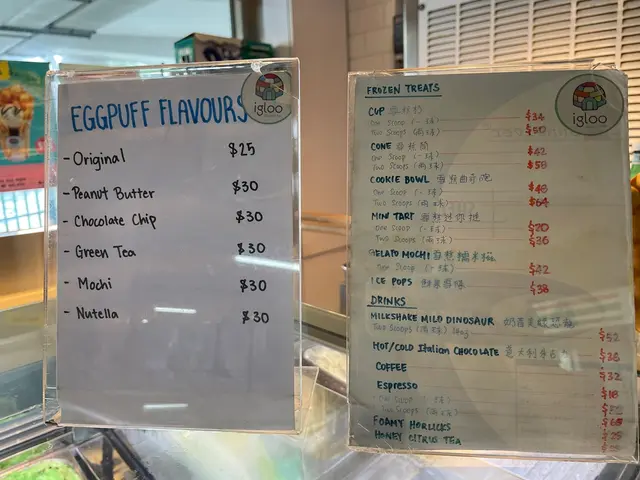 EGGPUFF FLAVOURS
igloo
- Original $25
- Peanut Butter $30
- Chocolate Chip $30
- Green Tea $30
- Mochi $30
- Nutella $30
igloo
FROZEN TREATS
CUP $34
Two Scoops (兩球) $50
CONE $42
One Scoop (一球)
Two Scoops (兩球) $58
COOKIE BOWL $48
One Scoop (一球)
Two Scoops (兩球) $64
MINI TART
One Scoop (一球) $20
Two Scoops (兩球) $36
GELATO MOCHI
One Scoop (一球) $32
ICE POPS $38
DRINKS
MILKSHAKE MILD DINOSAUR
Two Scoops (兩球) $52
HOT/COLD Italian CHOCOLATE $36
COFFEE $32
Espresso $18
One Scoop (一球)
Two Scoops (兩球)
FOAMY HORLICKS
HONEY CITRUS TEA